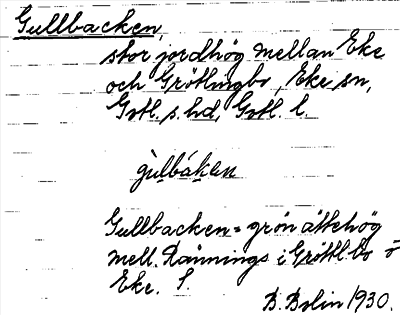 Gullbacken,
stor jordhög mellan Eke
och Grötlingbo, Eke sn,
Gotl. s. hd, Gotl. l.
gùlbáken
Gullbacken = grön ättehög
mell. Rännings i Gröttl.bo o
Eke. S.
B. Bolin 1930.